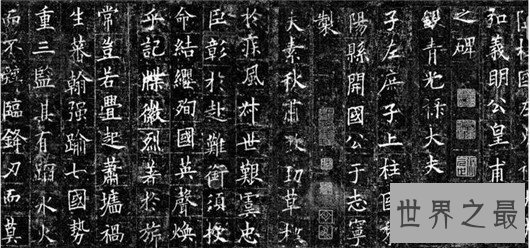 弘義明公皇甫
之碑
銀青光祿大夫
子左庶子上柱國
陽縣開國公于志寧
製
夫素秋肅煞勁草標
於疾風叔世艱虞忠
臣彰於赴難銜須授
命結纓殉國英聲煥
乎記牒徽烈著於旂
常豈若舋起蕭墻禍
生蕃翰强踰七國勢
重三監其有蹈水火
而不辭臨鋒刃而莫
世界之最